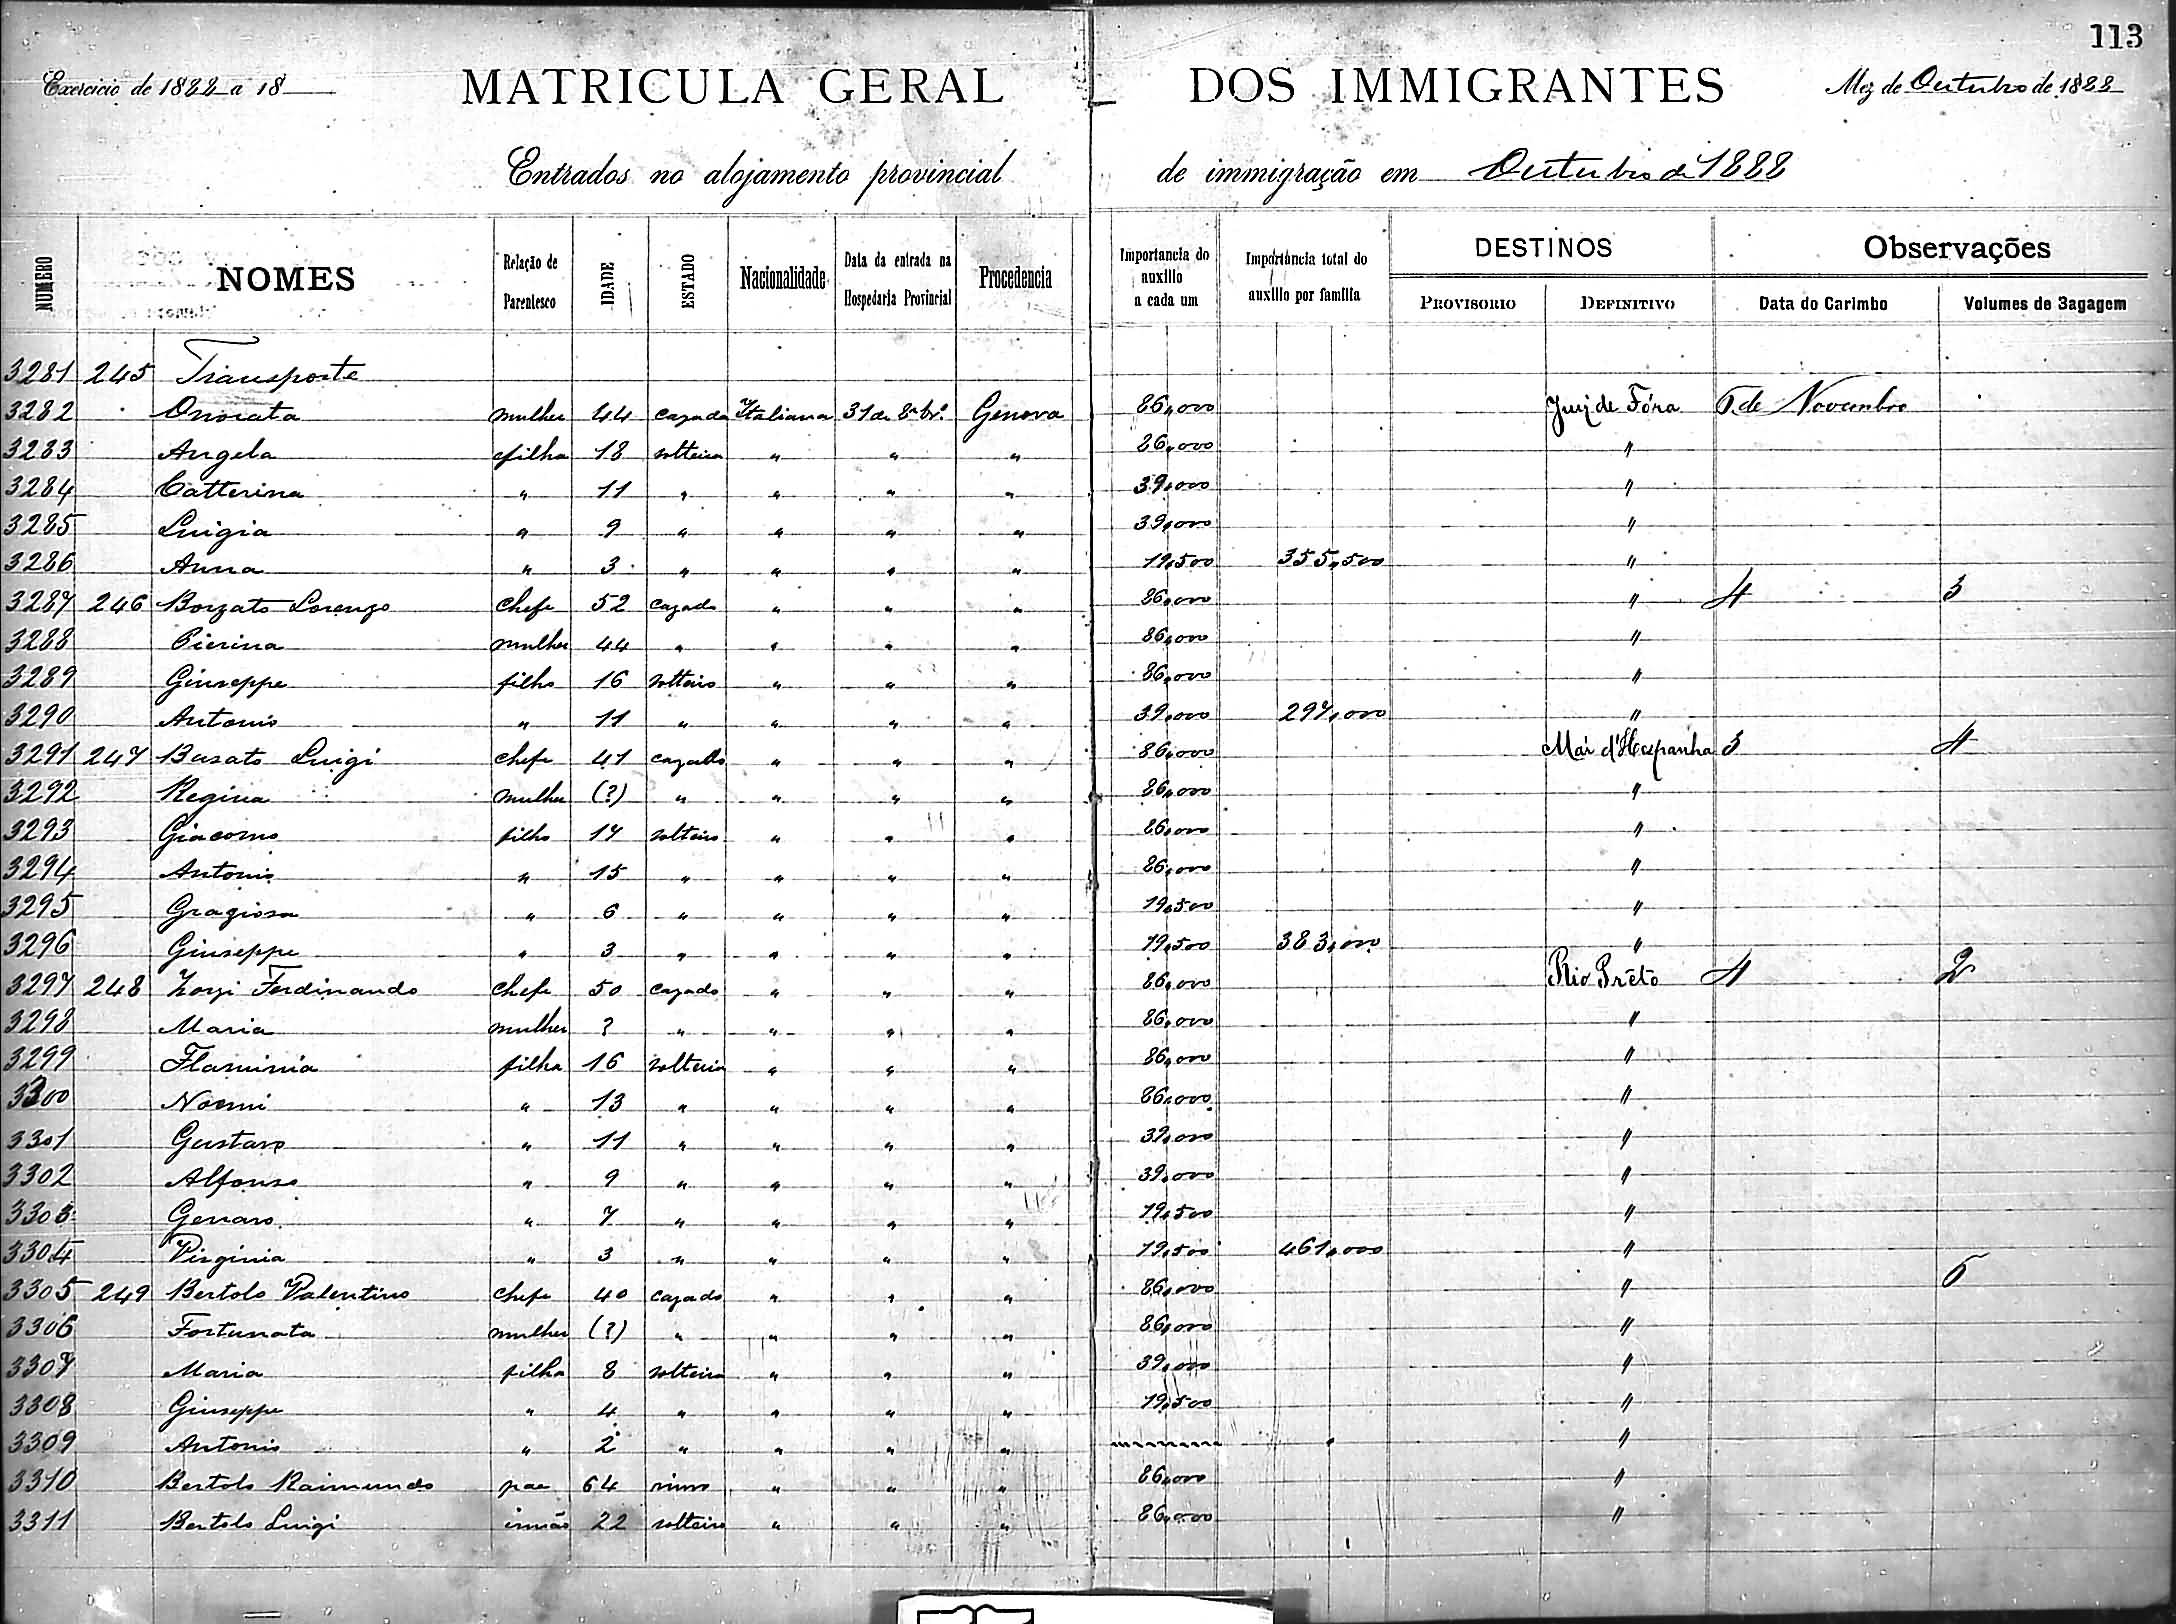 113
Exercicio de 1888 a 18
MATRICULA GERAL DOS IMMIGRANTES
Mez de Outubro de 1888
Entrados no alojamento provincial de immigração em Outubro de 1888
NUMERO NOMES Relação de Parentesco IDADE ESTADO Nacionalidade Data da entrada na Hospedaria Provincial Procedencia Importancia do auxilio a cada um Importancia total do auxilio por familia DESTINOS PROVISORIO DEFINITIVO Observações Data do Carimbo Volumes de Bagagem
3281 245 Transporte
3282 Onorata mulher 44 cazada Italiana 31 de 8bro. Genova 86,000 Juiz de Fóra de Novembro
3283 Angela filha 18 solteira " " " 86,000 "
3284 Catterina " 11 " " " " 39,000 "
3285 Luigia " 9 " " " " 39,000 "
3286 Anna " 3 " " " " 19,500 355,500 "
3287 246 Borzato Lorenzo chefe 52 cazado " " " 86,000 " 4 3
3288 Pierina mulher 44 " " " " 86,000 "
3289 Giuseppe filho 16 solteiro " " " 86,000 "
3290 Antonio " 11 " " " " 39,000 297,000 "
3291 247 Busato Luigi chefe 41 cazado " " " 86,000 Mar d'Hespanha 3 4
3292 Regina mulher (?) " " " " 86,000 "
3293 Giacomo filho 17 solteiro " " " 86,000 "
3294 Antonio " 15 " " " " 86,000 "
3295 Graziosa " 6 " " " " 19,500 "
3296 Giuseppe " 3 " " " " 19,500 383,000 "
3297 248 Zorzi Ferdinando chefe 50 cazado " " " 86,000 Rio Prêto 4 2
3298 Maria mulher ? " " " " 86,000 "
3299 Flaminia filha 16 solteira " " " 86,000 "
3300 Noemi " 13 " " " " 86,000 "
3301 Gustavo " 11 " " " " 39,000 "
3302 Alfonso " 9 " " " " 39,000 "
3303 Genaro " 7 " " " " 19,500 "
3304 Virginia " 3 " " " " 19,500 461,000 "
3305 249 Bertolo Valentino chefe 40 cazado " " " 86,000 "
3306 Fortunata mulher (?) " " " " 86,000 "
3307 Maria filha 8 solteira " " " 39,000 "
3308 Giuseppe " 4 " " " " 19,500 "
3309 Antonio " 2 " " " " "
3310 Bertolo Raimundo pae 64 viuvo " " " 86,000 "
3311 Bertolo Luigi irmão 22 solteiro " " " 86,000 "